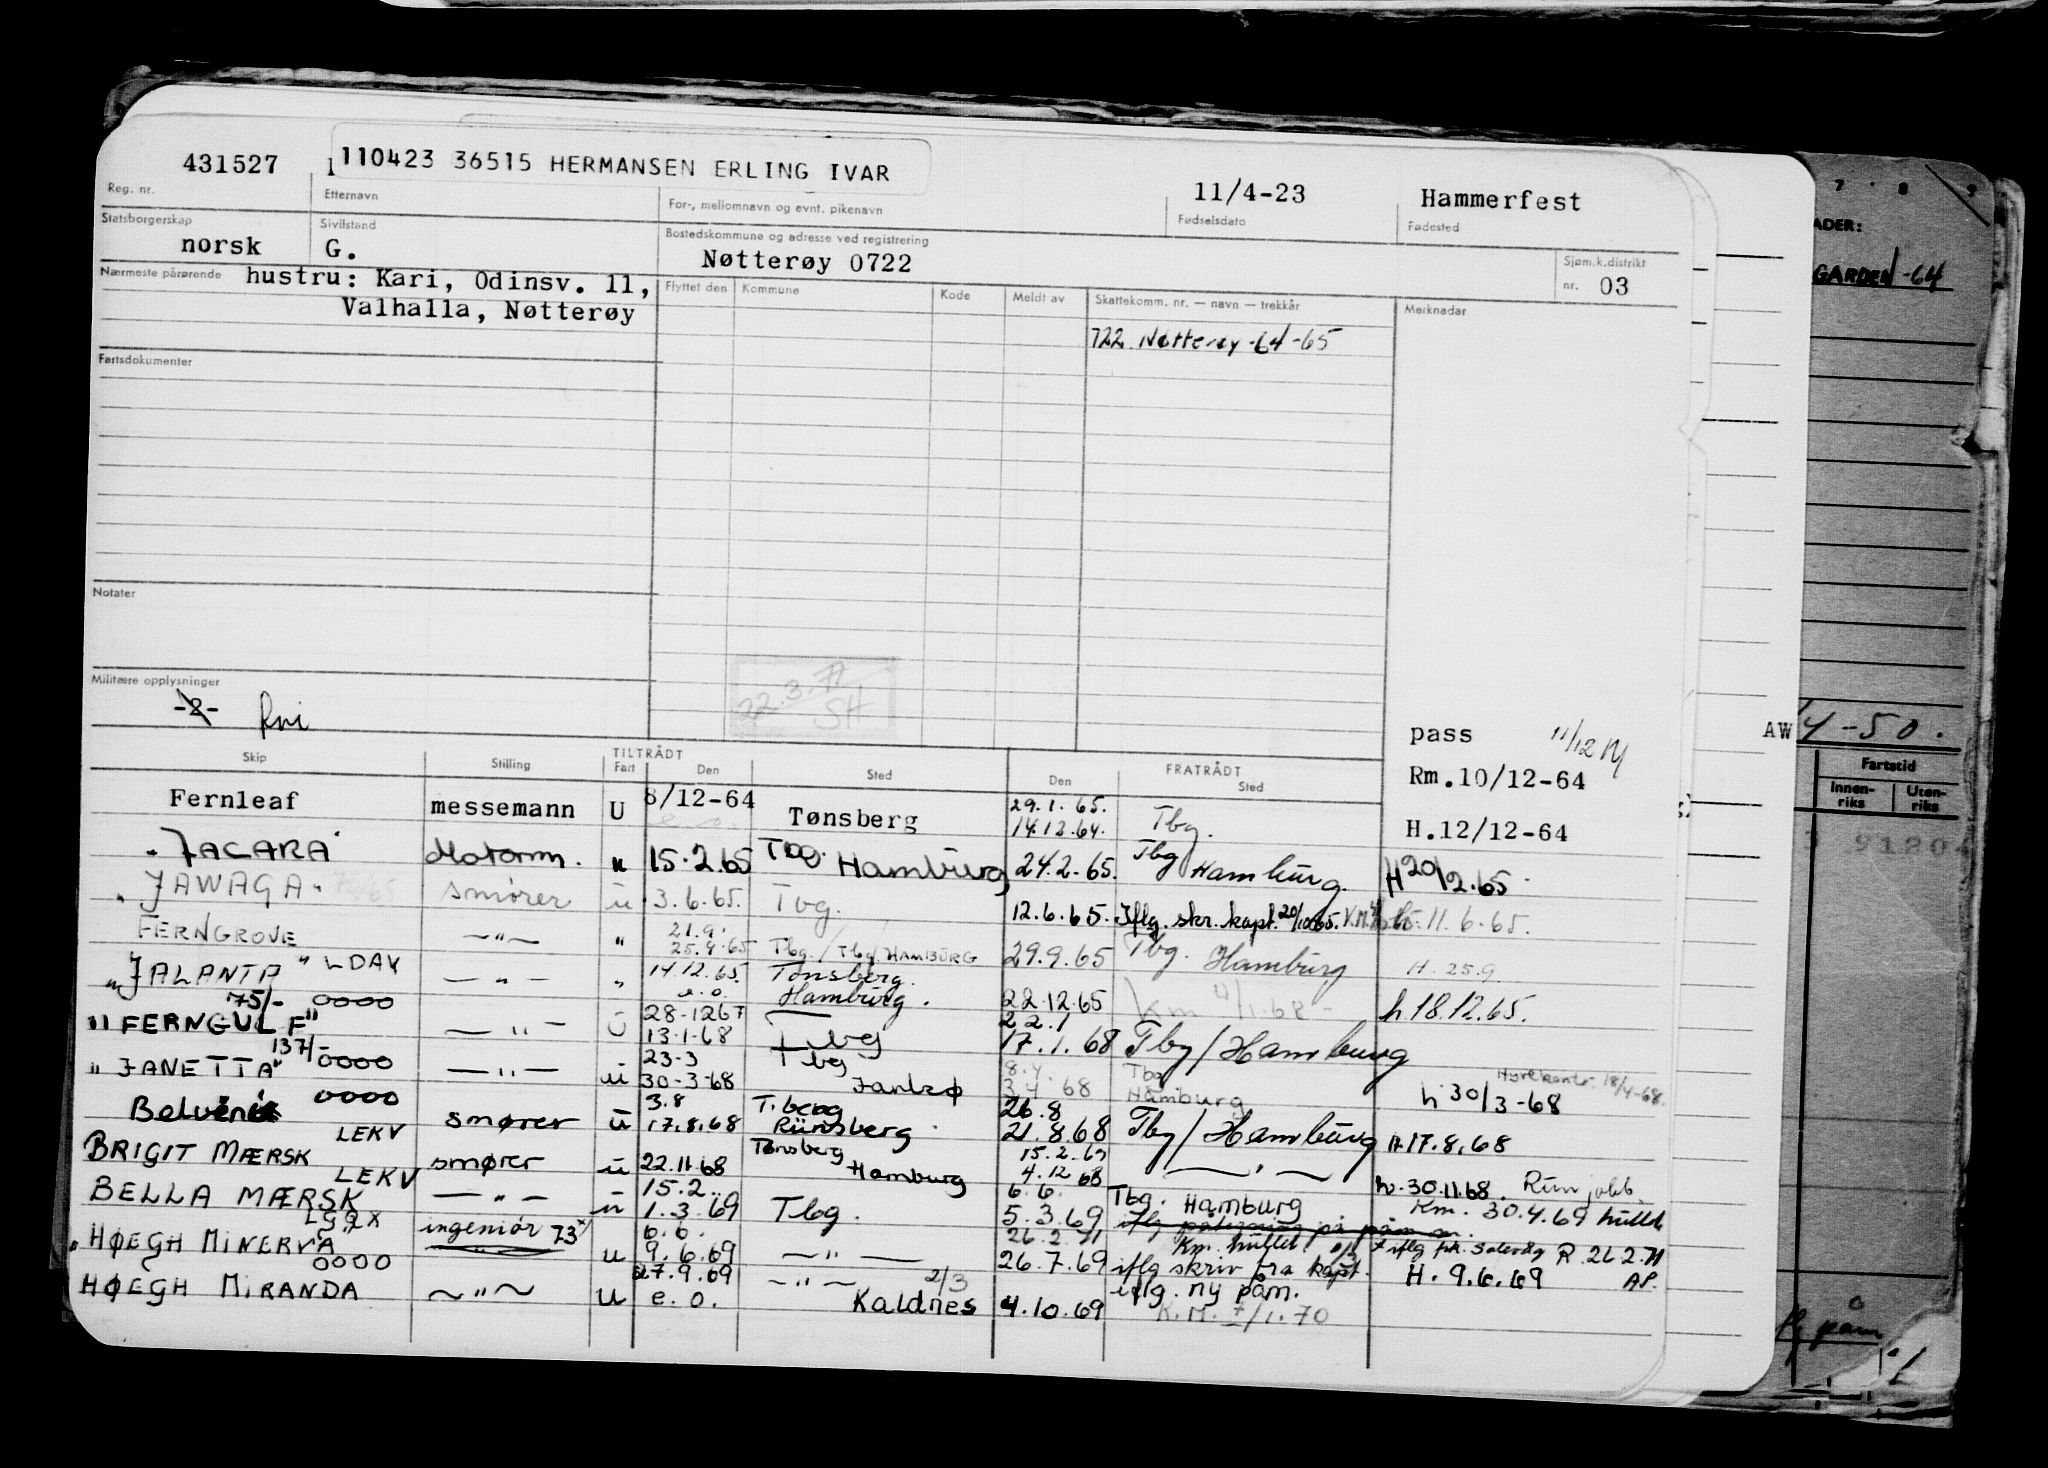 431527 110423 36515 HERMANSEN ERLING IVAR 11/4-23 Hammerfest
Reg. nr. Etternavn For-, mellomnavn og evnt. pikenavn Fødselsdato Fødested
Statsborgerskap Sivilstand Bostedskommune og adresse ved registrering
norsk G. Nøtterøy 0722 Sjøm.k.distrikt
nr. 03
Nærmeste pårørende hustru: Kari, Odinsv. 11, Flyttet den Kommune Kode Meldt av Skattekomm. nr. — navn — trekkår Merknader
Valhalla, Nøtterøy
722 Nøtterøy -64-65
Fartsdokumenter
Notater
Militære opplysninger
-2- fri
22.3.77
SH
pass 11/12
Rm.10/12-64
H.12/12-64
Skip Stilling TILTRÅDT Fart Den Sted Den FRATRÅDT Sted
Fernleaf messemann U 8/12-64 Tønsberg 29.1.65. 14.12.64. Tbg.
e.o.
"JACARA" Motorm. " 15.2.65 Tbg. Hamburg 24.2.65. Tbg Hamburg. H 20/2.65
"JAWAGA" smører u 3.6.65. Tbg. 12.6.65. Iflg. skr. kapt. 11.6.65.
FERNGROVE —"— " 21.9. 25.9.65 Tbg./Tbg/HAMBURG 29.9.65 Tbg. Hamburg H. 25.9
"JALANTA" LDAY —"— " 14.12.65. e.o. Tønsberg. Hamburg. 22.12.65 Km 4/1.68 h.18.12.65.
75/- 0000
"FERNGULF" —"— U 28-1267 13.1.68 Tbg 22.1 17.1.68 Tbg/Hamburg
137/- 0000
"JANETTA" —"— u 23-3 30-3-68 Tbg 8.4. 3.4.68 Tbg Hamburg h 30/3-68
Hyrekonto. 18/4-68.
0000
smører u 3.8 17.8.68 T.berg 26.8 21.8.68 Tbg/Hamburg H.17.8.68
LEKV
BRIGIT MÆRSK smører u 22.11.68 Tønsberg Hamburg 15.2.69 4.12.68 —"—
LEKV
BELLA MÆRSK —"— u 15.2. 1.3.69 Tbg. 6.6. 5.3.69 Tbg. Hamburg h.30.11.68. Run jobb.
Km. 30.4.69 hullet
LGQX
"HØEGH MINERVA ingeniør 73 u 6.6. 9.6.69 —"— 26.2.71 26.7.69 Km. hullet iflg skriv fra kapt. R 26.2.71
H. 9.6.69 AP.
0000
HØEGH MIRANDA —"— U 27.9.69 e.o. —"— 2/3 Kaldnes 4.10.69 iflg. ny påm.
K.M. 7/1.70
7 8 9
GARDEN -64
AW
4-50.
Fartstid
Innen-
riks Uten-
riks